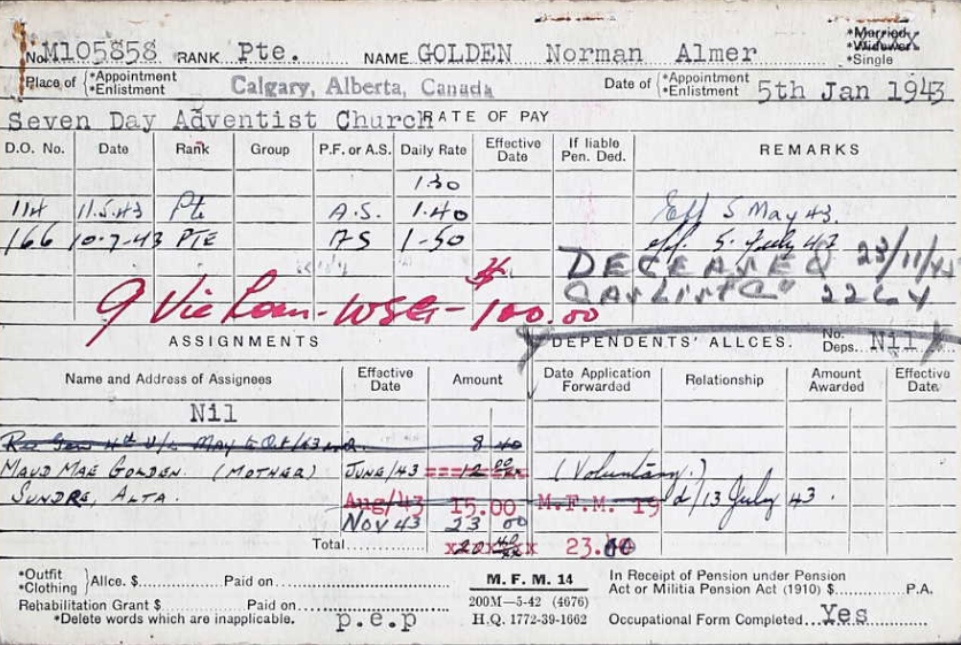 No. M105858 RANK Pte. NAME GOLDEN Norman Almer *Married *Widower *Single
Place of { *Appointment *Enlistment Calgary, Alberta, Canada Date of { *Appointment *Enlistment 5th Jan 1943
Seven Day Adventist Church RATE OF PAY
D.O. No. Date Rank Group P.F. or A.S. Daily Rate Effective Date If liable Pen. Ded. REMARKS
1.30
114 11.5.43 Pte A.S. 1.40 Eff 5 May 43.
166 10-7-43 PTE AS 1-50 eff. 5. July 43
DECEASED 23/11/
CAS LIST "C" 2264
9 Vic Loan - WSG - $100.00
ASSIGNMENTS DEPENDENTS' ALLCES. No. Deps. Nil
Name and Address of Assignees Effective Date Amount Date Application Forwarded Relationship Amount Awarded Effective Date
Nil
May to Oct/43 8 40
MAUD MAE GOLDEN. (MOTHER) JUNE/43 12 00 (Voluntary.)
SUNDRE, ALTA. Aug/43 15.00 M.F.M. 19 d/13 July 43.
Nov 43 23 00
Total 20 40 23.00
*Outfit *Clothing } Allce. $ Paid on M. F. M. 14 In Receipt of Pension under Pension Act or Militia Pension Act (1910) $ P.A.
Rehabilitation Grant $ Paid on 200M—5-42 (4676)
*Delete words which are inapplicable. p.e.p H.Q. 1772-39-1662 Occupational Form Completed Yes